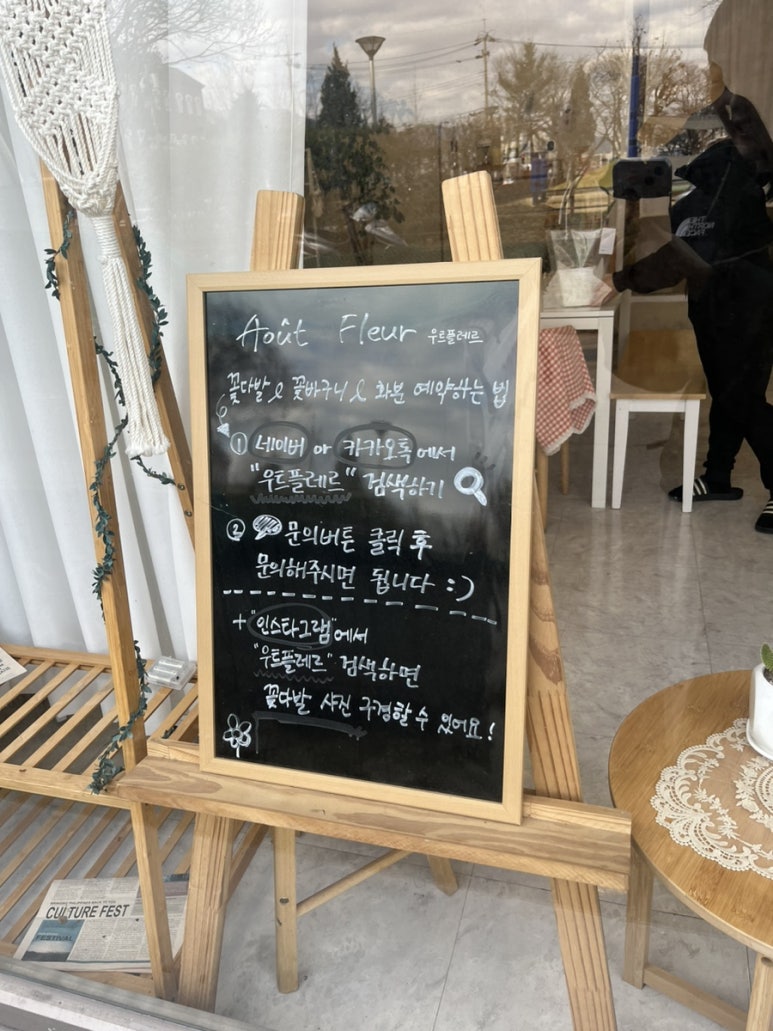 Août Fleur 우트플레르
꽃다발 & 꽃바구니 & 화분 예약하는 법
① 네이버 or 카카오톡에서
"우트플레르" 검색하기
② 문의버튼 클릭 후
문의해주시면 됩니다 :)
+ "인스타그램"에서
"우트플레르" 검색하면
꽃다발 사진 구경할 수 있어요!
CULTURE FEST
FESTIVAL
THE NORTH FACE